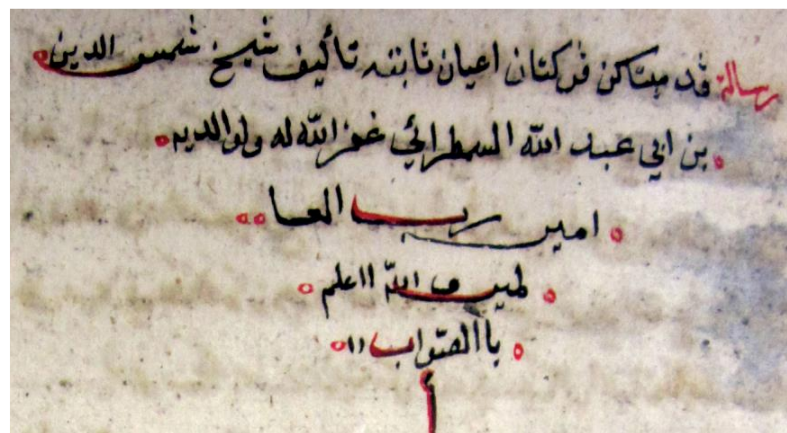 رسالة قد مپتاكن فركتان اعيان ثابته تأليف شيخ شمس الدين
بن ابي عبد الله السمطرائي غفر الله له ولوالديه
امين رب العا
لمين و الله ااعلم
باالصّواب ١١
أ